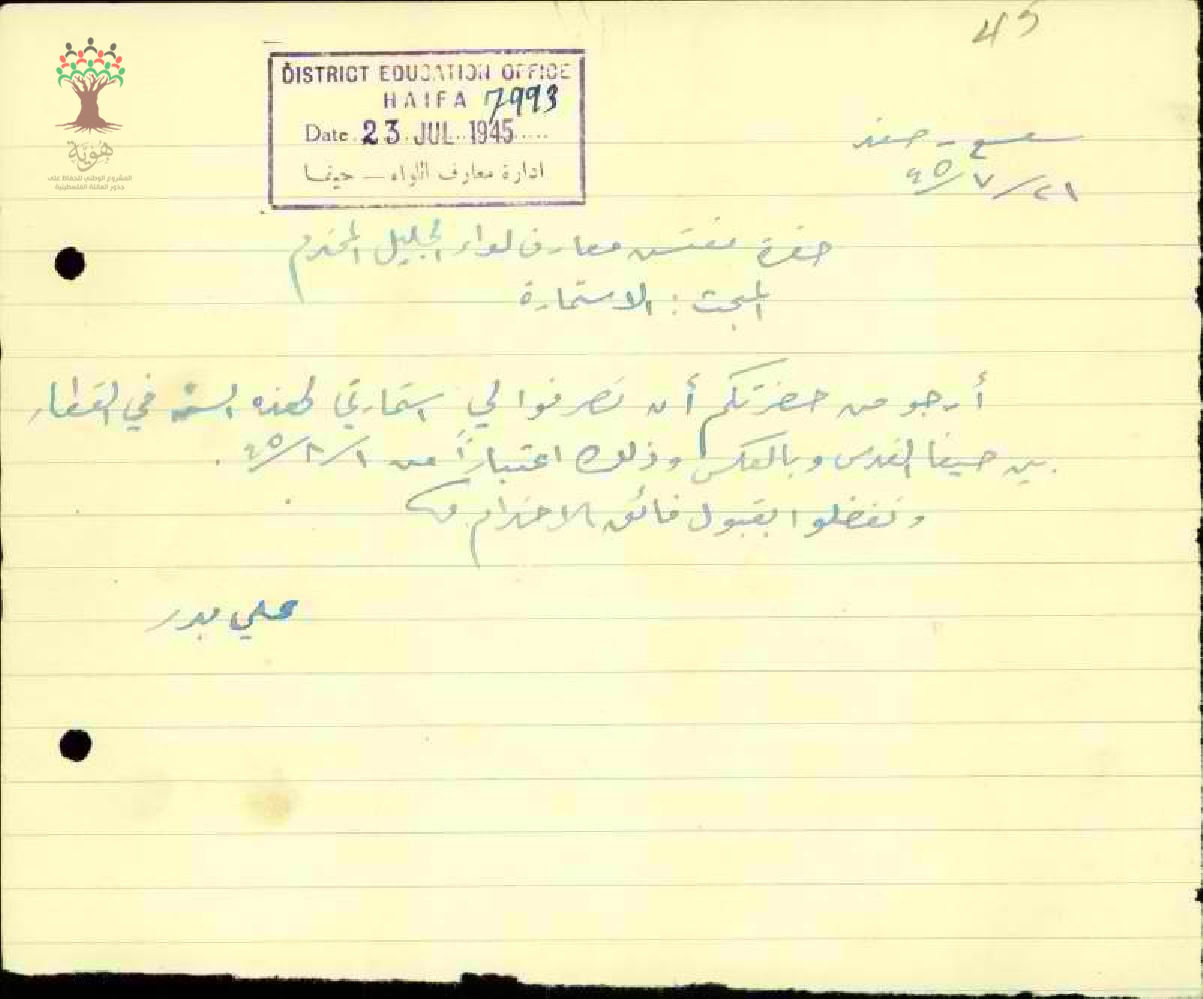 45
هوية
المشروع الوطني للحفاظ على
جذور العائلة الفلسطينية
DISTRICT EDUCATION OFFICE
HAIFA 7993
Date 23 JUL 1945
ادارة معارف اللواء - حيفا
سعسع - صفد
٤٥/٧/٢١
حضرة مفتش معارف لواء الجليل المحترم
المبحث : الاستمارة
أرجو من حضرتكم أن تصرفوا لي استمارتي لهذه السنة في القطار
بين حيفا القدس وبالعكس وذلك اعتباراً من ٤٥/٨/١ .
وتفضلوا بقبول فائق الاحترام
علي بدر